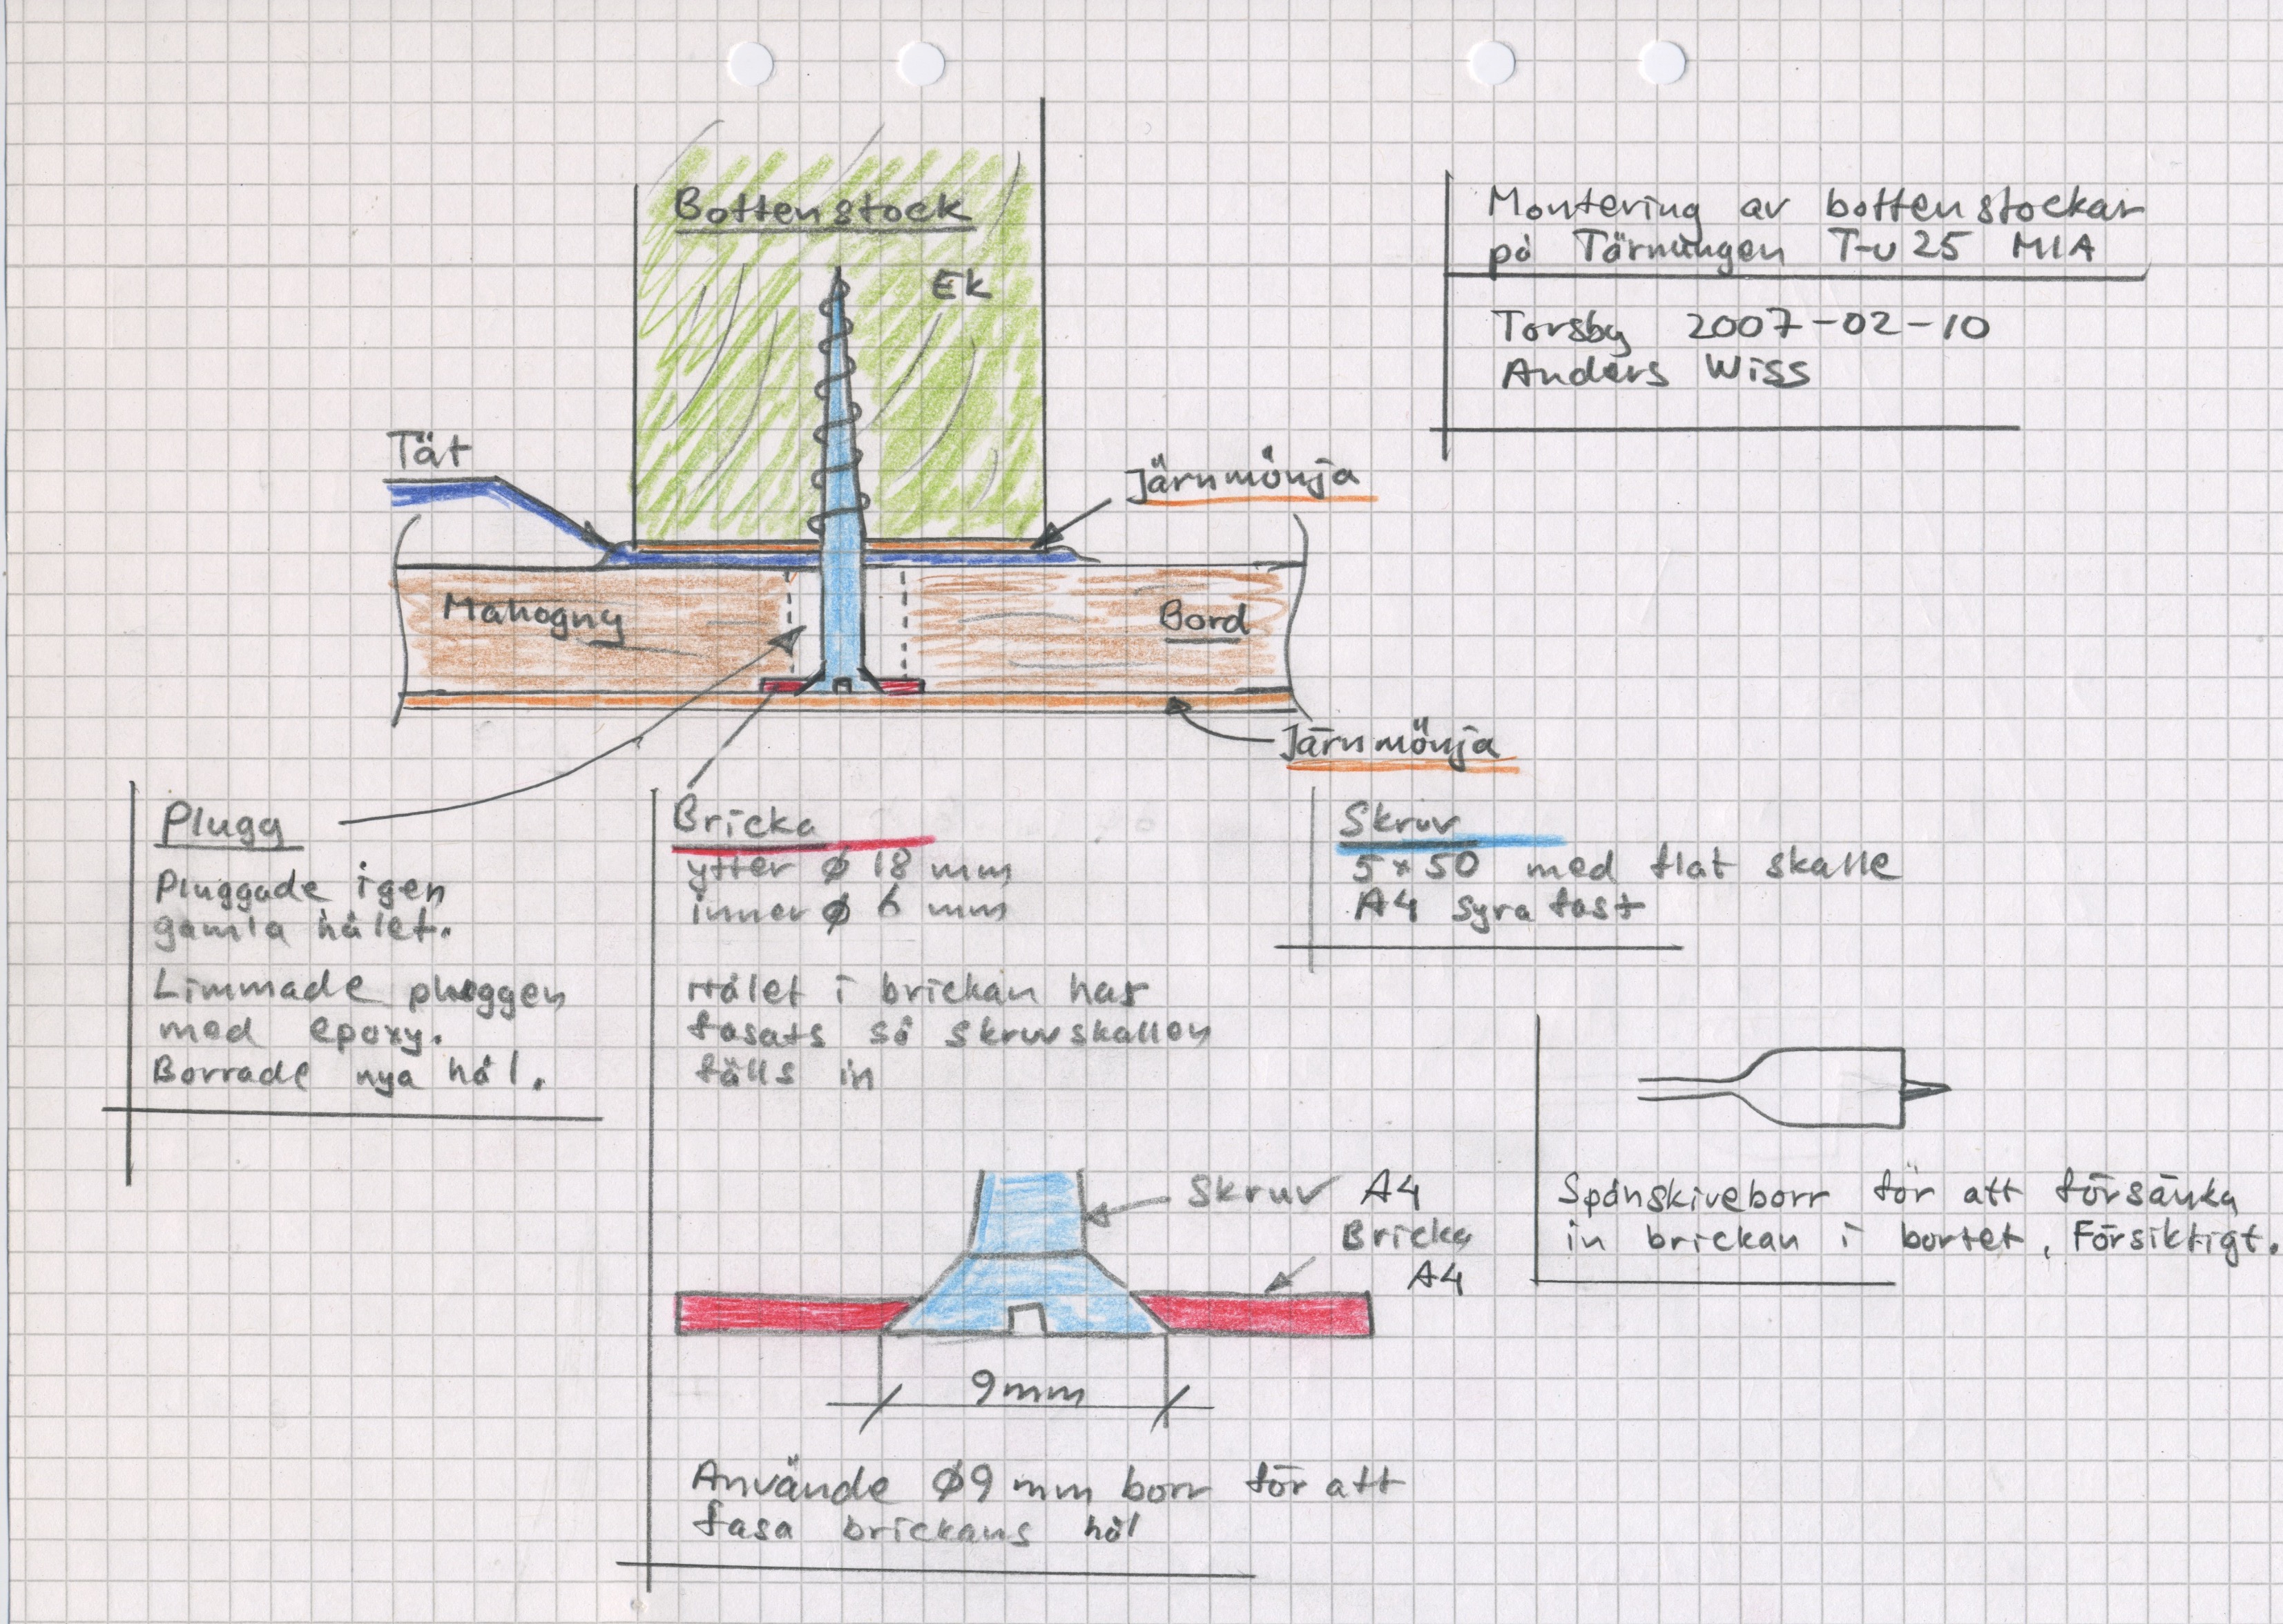 Bottenstock
Ek
Montering av bottenstockar
på Tärningen T-U 25 MIA
Torsby 2007-02-10
Anders Wiss
Tät
Järnmönja
Mahogny
Bord
Järnmönja
Plugg
Pluggade igen
gamla hålet.
Limmade pluggen
med epoxy.
Borrade nya hål.
Bricka
ytter ø 18 mm
inner ø 6 mm
Hålet i brickan har
fasats så skruvskallen
fälls in
Skruv
5x50 med flat skalle
A4 syra fast
Skruv A4
Bricka
A4
9mm
Använde Ø9 mm borr för att
fasa brickans hål
Spånskiveborr för att försänka
in brickan i bortet, Försiktigt.